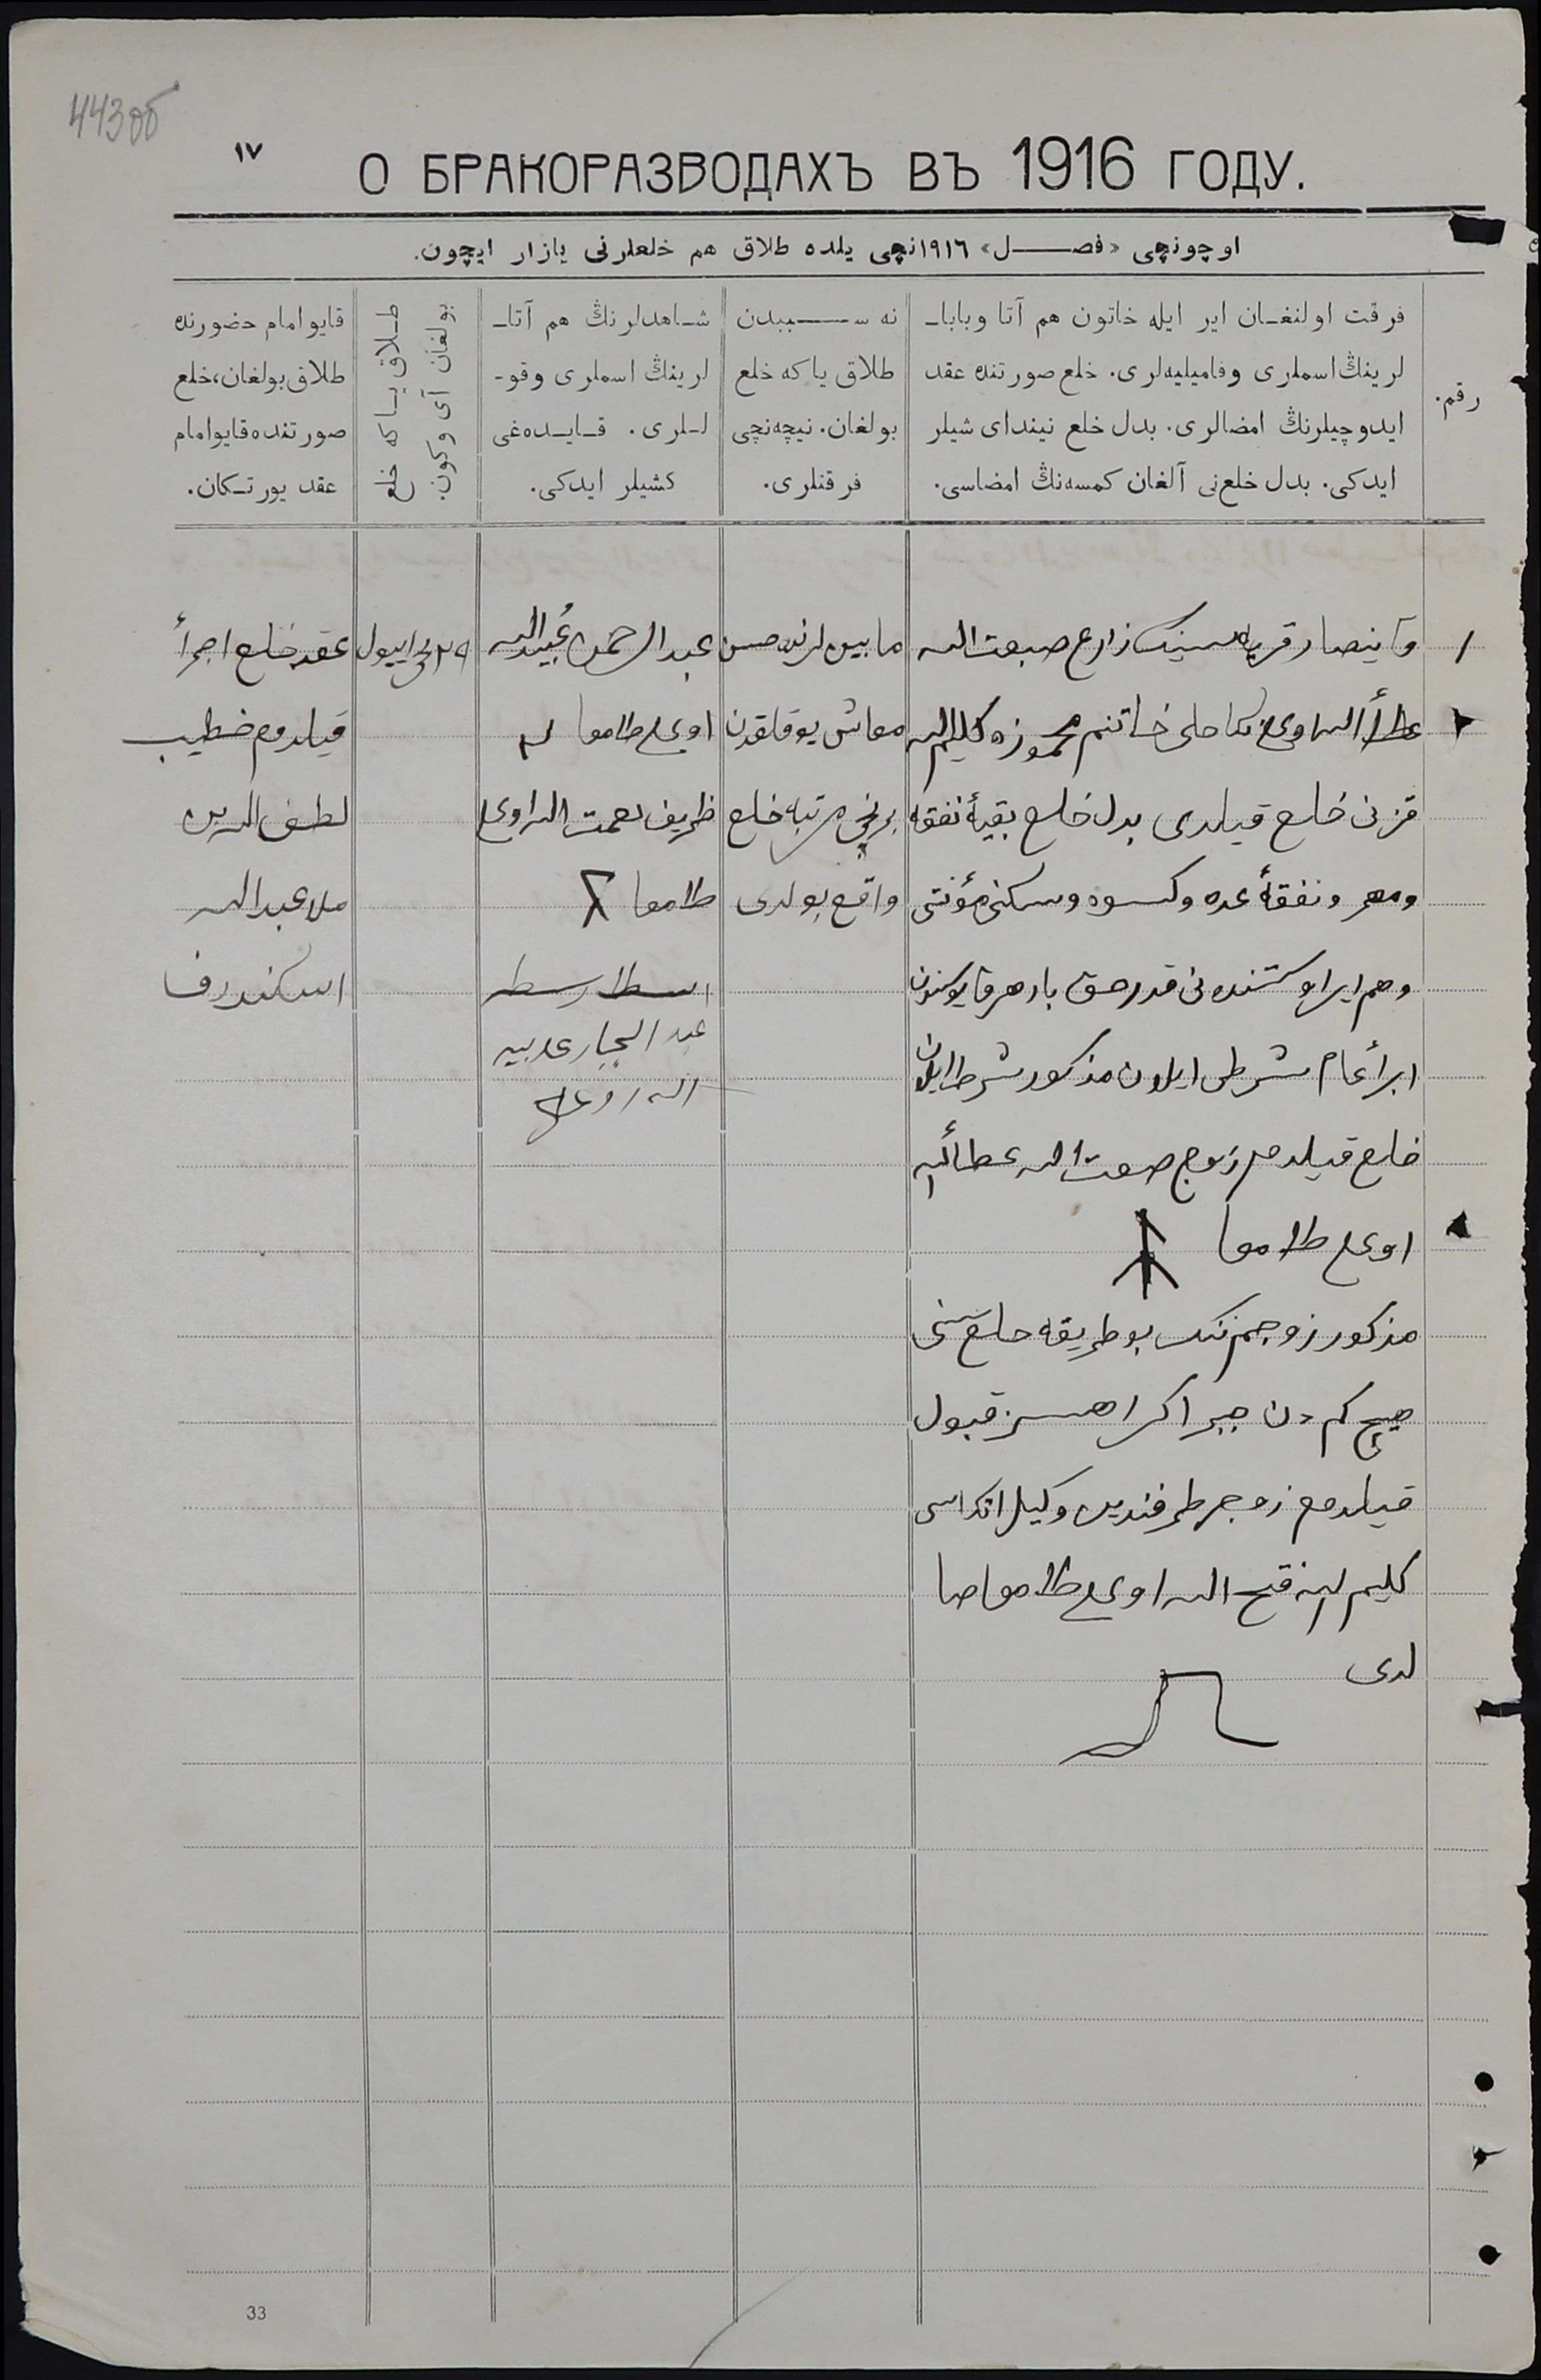 443об
١٧
О БРАКОРАЗВОДАХЪ ВЪ 1916 ГОДУ.
اوچونچی «فصـــل» ١٩١٦نچی یلده طلاق هم خلعلرنی یازار ایچون.
رقم.
فرقت اولنغـان ایر ایله خاتون هم آتا وبابا-
لرینڭ اسملری وفامیلیه‌لری. خلع صورتنده عقد
ایدوچیلرنڭ امضالری. بدل خلع نیندای شیلر
ایدکی. بدل خلع‌نی آلغان کمسه‌نڭ امضاسی.
نه ســـببدن
طلاق یا که خلع
بولغان. نیچه‌نچی
فرقتلری.
شـاهدلرنڭ هم آتا-
لرینڭ اسملری وقو-
لـلری. قـایـده‌غی
کشیلر ایدکی.
طـلاق یـا که خلع
بولغان آی و کون.
قایو امام حضورنده
طلاق بولغان، خلع
صورتنده قایو امام
عقد یورتـکان.
١
زارع صبعت الله
عطأ الله اوغلی نکاحلی خاتنم کلیم الله
قزنی خلع قیلدی بدل خلع بقیۀ نفقه
ومهر ونفقۀ عده وکسوه وسکنی مؤنتی
وهم ایر اوستنده نی قدر حق بار هر قایوسندن
ابرأ عام شرطی ایلان مذکور شرط ایلان
خلع قیلدم زوج صبعت الله عطأ الله
اوغلی طامغا
مذکور زوجم‌ننک بو طریقه خلع‌سنی
هیچ کم دن جبر اکراهسز قبول
قیلدم زوجه طرفندین وکیل اتاسی
کلیم الله فتح الله اوغلی طامغا صا
لدی
مابین لرنده حسن
معاش یوقلقدن
برنچی مرتبه خلع
واقع بولدی
عبد الرحمن عبید الله
اوغلی طامغا
ظریف نعمت الله اوغلی
طامغا
عبد الجبار
الله اوغلی
٢٩ نچی ایول
عقد خلع اجرأ
قیلدم خطیب
لطف الدین
ملا عبد الله
اسکندروف
33